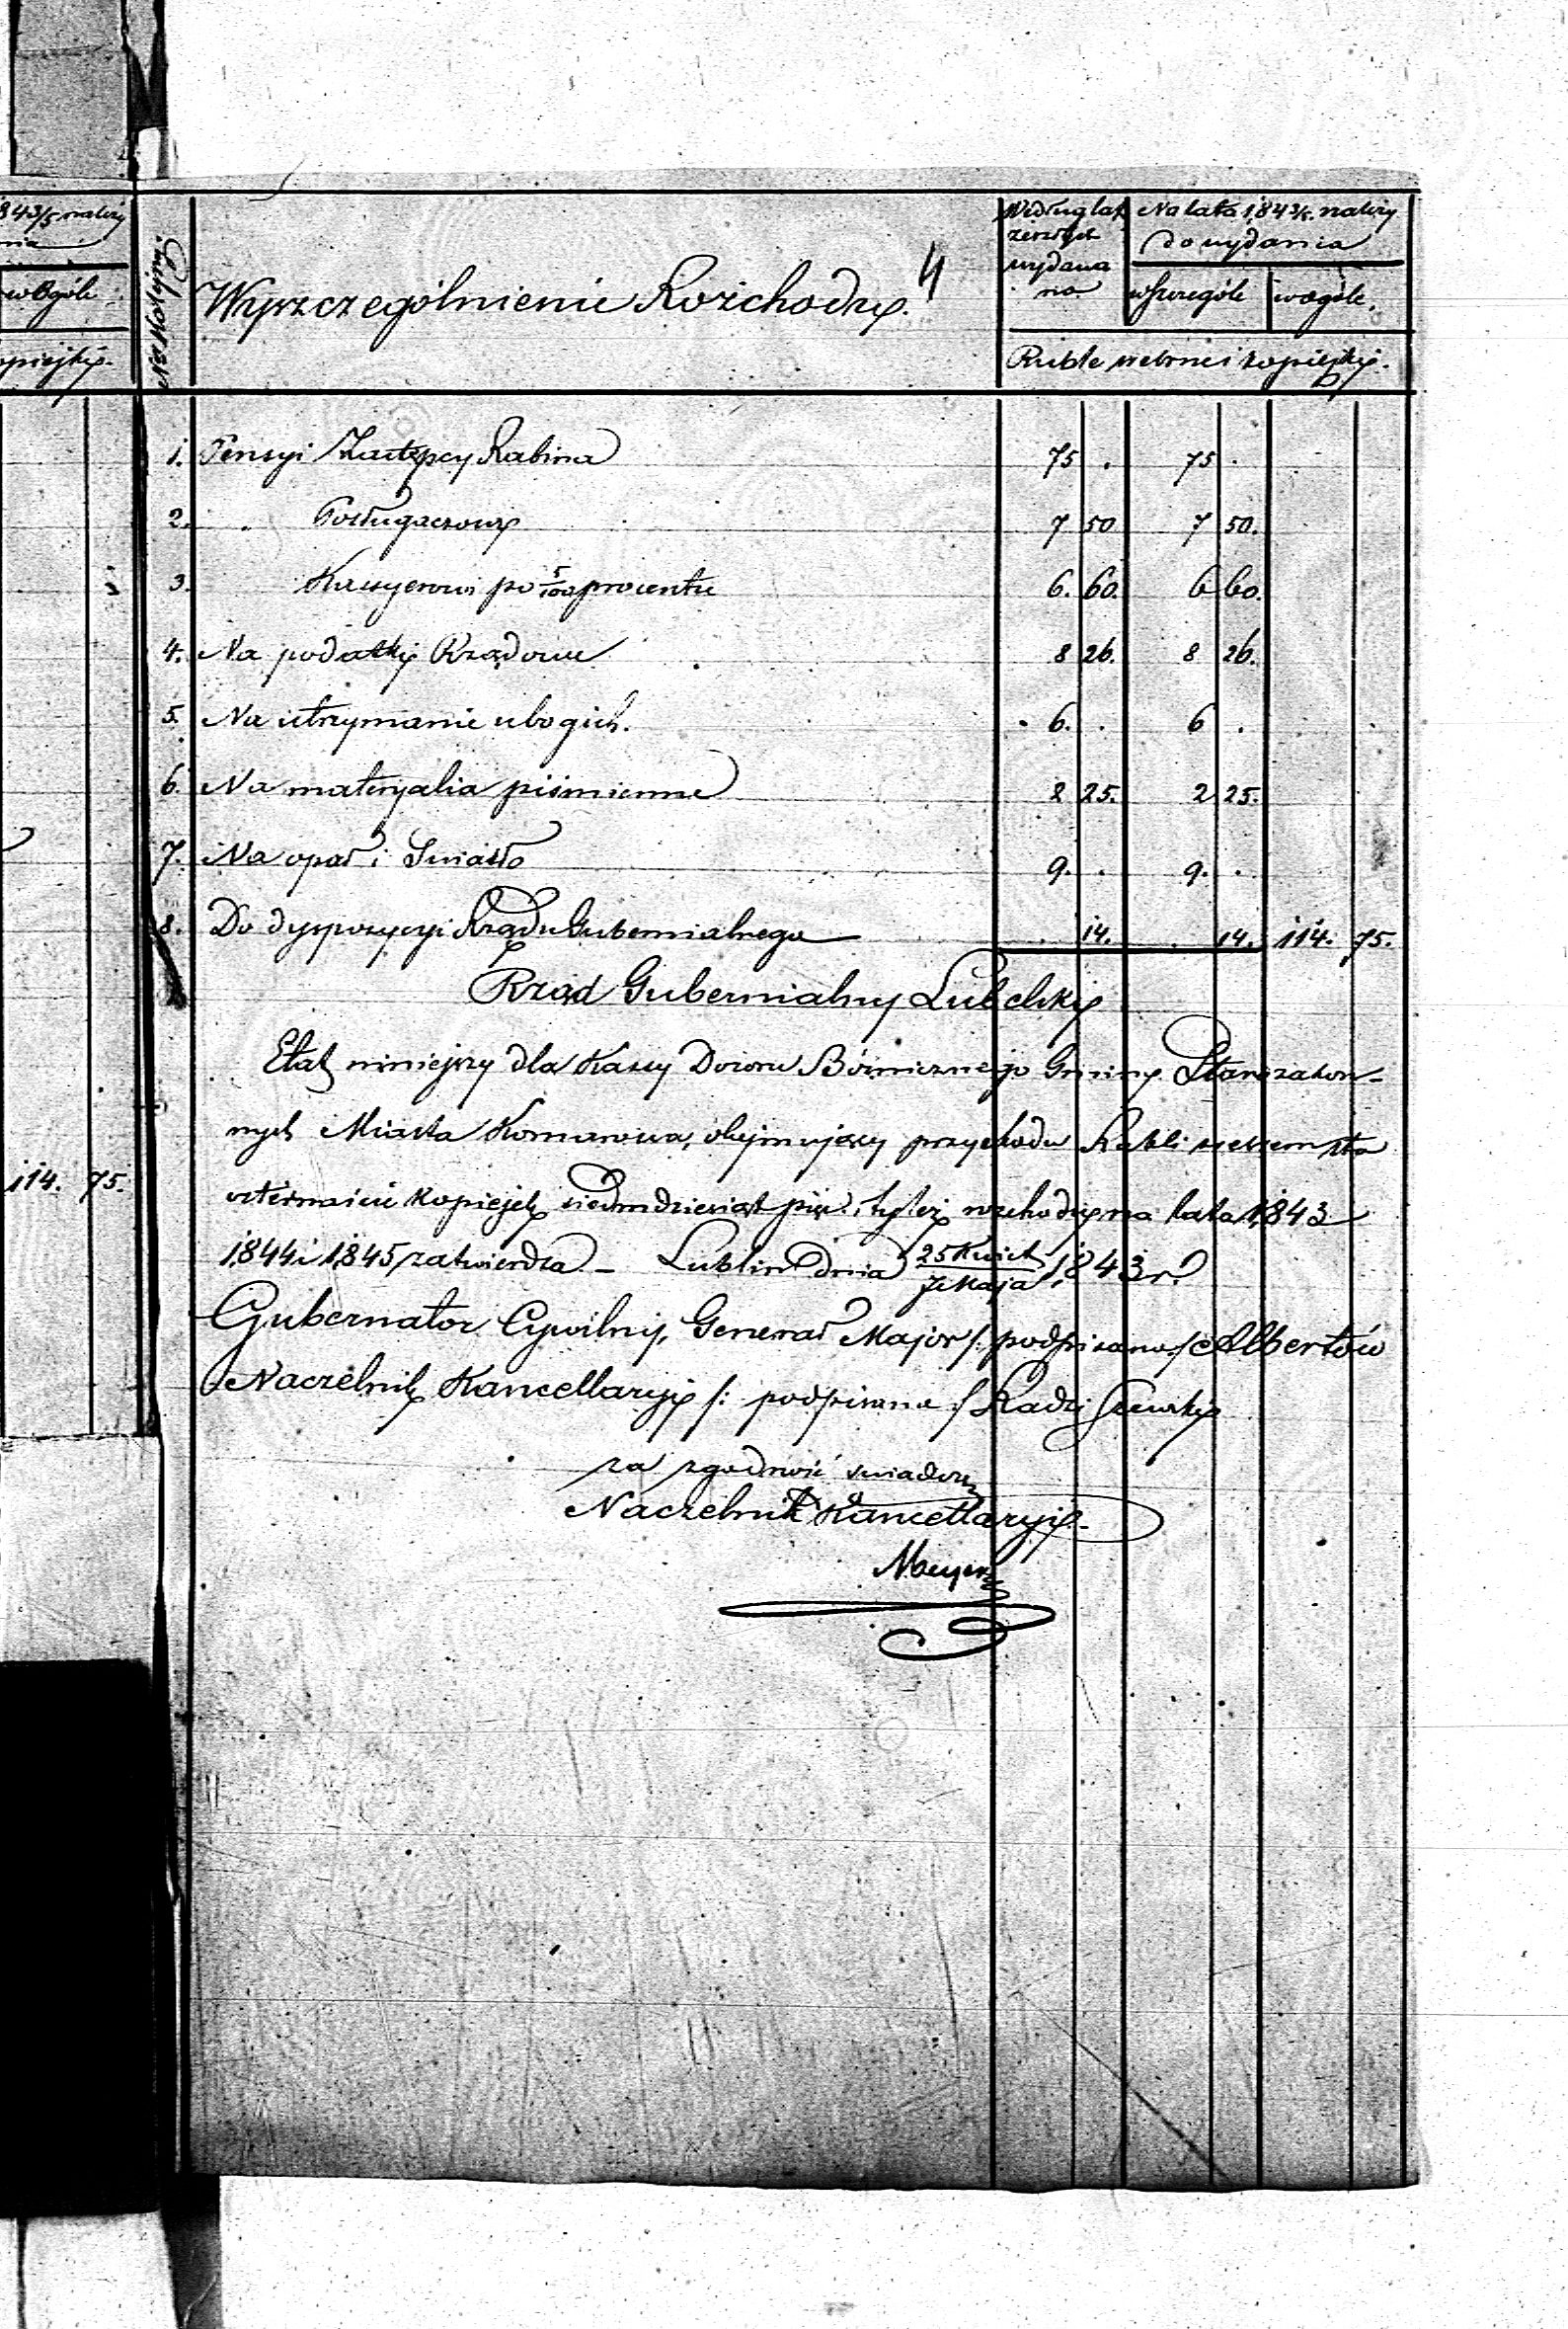 1843/5 należy
nia
wogóle
kopiejki.
114. 75.
4
No Kolejny.
Wyszczególnienie Rozchodu.
Według lat
zeszłych
wydawa
no
Na lata 1843/5. należy
do wydania
wszczególe
wogóle.
Ruble srebrne i kopiejki.
1. Pensyi Zastępcy Rabina 75 . 75 .
2. " Posługaczowi 7 50 7 50.
3. Kassyerowi po 5/100 procentu 6. 60. 6 60.
4. Na podatki Rządowe 8 26. 8 26.
5. Na utrzymanie ubogich. 6. . 6 .
6. Na materyalia piśmienne 2 25. 2 25.
7. Na opał i Swiatło 9. . 9. .
8. Do dyspozycyi Rządu Gubernialnego . 14. . 14. 114. 75.
Rząd Gubernialny Lubelski
Etat niniejszy dla Kassy Dozoru Bóżnicznego Gminy Starozakon-
nych Miasta Komarowa, obejmujący przychodu Rubli srebrem sto
czternaście Kopiejek siedmdziesiąt pięć, tyleż rozchodu na lata 1843
1844 i 1845 zatwierdza – Lublin dnia 25 Kwiet/7 Maja 1843 r.
Gubernator Cywilny, Generał Major /: podpisano :/ Albertów
Naczelnik Kancellaryi /: podpisano :/ Radziszewski
za zgodność swiadczy
Naczelnik Kancellaryi
Meyer